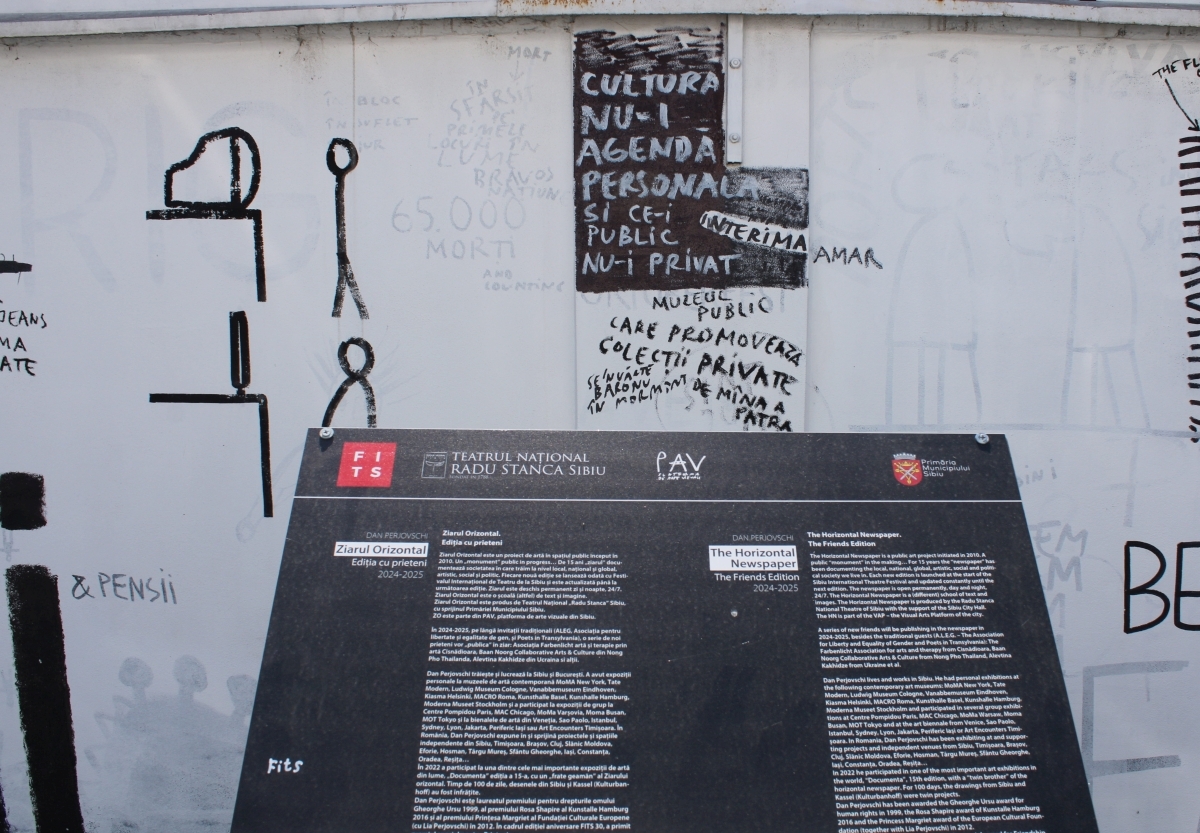 MORT
ÎN
SFARSIT
PE
PRIMELE
LOCURI ÎN
LUME
BRAVOS
NATIUNE
65.000
MORTI
AND
COUNTING
CULTURA
NU-I
AGENDĂ
PERSONALĂ
SI CE-I
PUBLIC
NU-I PRIVAT
INTERIMA
AMAR
MUZEUL
PUBLIC
CARE PROMOVEAZĂ
COLECTII PRIVATE
SE ÎNVÂLTE
BARONU
ÎN MORMÂNT
DE MÎNA A
PATRA
THE FL
JEANS
MA
ATE
& PENSII
BE
FITS
TEATRUL NAȚIONAL
RADU STANCA SIBIU
PAV
Primăria
Municipiului
Sibiu
DAN.PERJOVSCHI
Ziarul Orizontal
Ediția cu prieteni
2024-2025
Ziarul Orizontal.
Ediția cu prieteni
Ziarul Orizontal este un proiect de artă în spațiul public început în
2010. Un „monument" public in progress... De 15 ani „ziarul" docu-
mentează societatea în care trăim la nivel local, național și global,
artistic, social și politic. Fiecare nouă ediție se lansează odată cu Festi-
valul Internațional de Teatru de la Sibiu și este actualizată până la
următoarea ediție. Ziarul este deschis permanent zi și noapte, 24/7.
Ziarul Orizontal este o școală (altfel) de text și imagine.
Ziarul Orizontal este produs de Teatrul Național „Radu Stanca" Sibiu,
cu sprijinul Primăriei Municipiului Sibiu.
ZO este parte din PAV, platforma de arte vizuale din Sibiu.
În 2024-2025, pe lângă invitații tradiționali (ALEG, Asociația pentru
libertate și egalitate de gen, și Poets in Transylvania), o serie de noi
prieteni vor „publica" în ziar: Asociația Farbenlicht artă și terapie prin
artă Cisnădioara, Baan Noorg Collaborative Arts & Culture din Nong
Pho Thailanda, Alevtina Kakhidze din Ucraina și alții.
Dan Perjovschi trăiește și lucrează la Sibiu și București. A avut expoziții
personale la muzeele de artă contemporană MoMA New York, Tate
Modern, Ludwig Museum Cologne, Vanabbemuseum Eindhoven.
Kiasma Helsinki, MACRO Roma, Kunsthalle Basel, Kunsthalle Hamburg,
Moderna Museet Stockholm și a participat la expoziții de grup la
Centre Pompidou Paris, MAC Chicago, MoMa Varșovia, Moma Busan,
MOT Tokyo și la bienalele de artă din Veneția, Sao Paolo, Istanbul,
Sydney, Lyon, Jakarta, Periferic Iași sau Art Encounters Timișoara. În
România, Dan Perjovschi expune in și sprijină proiectele și spațiile
independente din Sibiu, Timișoara, Brașov, Cluj, Slănic Moldova,
Eforie, Hosman, Târgu Mureș, Sfântu Gheorghe, Iași, Constanța,
Oradea, Reșița...
În 2022 a participat la una dintre cele mai importante expoziții de artă
din lume. „Documenta" ediția a 15-a, cu un „frate geamăn" al Ziarului
Orizontal. Timp de 100 de zile, desenele din Sibiu și Kassel (Kulturban-
hoff) au fost înfrățite.
Dan Perjovschi este laureatul premiului pentru drepturile omului
Gheorghe Ursu 1999, al premiului Rosa Shapire al Kunstalle Hamburg
2016 și al premiului Prințesa Margriet al Fundației Culturale Europene
(cu Lia Perjovschi) în 2012. În cadrul ediției aniversare FITS 30, a primit
Fits
DAN.PERJOVSCHI
The Horizontal
Newspaper
The Friends Edition
2024-2025
The Horizontal Newspaper.
The Friends Edition
The Horizontal Newspaper is a public art project initiated in 2010. A
public "monument" in the making... For 15 years the "newspaper" has
been documenting the local, national, global, artistic, social and politi-
cal society we live in. Each new edition is launched at the start of the
Sibiu International Theatre Festival and updated constantly until the
next edition. The newspaper is open permanently, day and night,
24/7. The Horizontal Newspaper is a (different) school of text and
images. The Horizontal Newspaper is produced by the Radu Stanca
National Theatre of Sibiu with the support of the Sibiu City Hall.
The HN is part of the VAP – the Visual Arts Platform of the city.
A series of new friends will be publishing in the newspaper in
2024-2025, besides the traditional guests (A.L.E.G. – The Association
for Liberty and Equality of Gender and Poets in Transylvania): The
Farbenlicht Association for arts and therapy from Cisnădioara, Baan
Noorg Collaborative Arts & Culture from Nong Pho Thailand, Alevtina
Kakhidze from Ukraine et al.
Dan Perjovschi lives and works in Sibiu. He had personal exhibitions at
the following contemporary art museums: MoMA New York, Tate
Modern, Ludwig Museum Cologne, Vanabbemuseum Eindhoven,
Kiasma Helsinki, MACRO Roma, Kunsthalle Basel, Kunshalle Hamburg,
Moderna Museet Stockholm and participated in several group exhibi-
tions at Centre Pompidou Paris, MAC Chicago, MoMa Warsaw, Moma
Busan, MOT Tokyo and at the art biennale from Venice, Sao Paolo,
Istanbul, Sydney, Lyon, Jakarta, Periferic Iasi or Art Encounters Timi-
șoara. In Romania, Dan Perjovschi has been exhibiting at and suppor-
ting projects and independent venues from Sibiu, Timișoara, Brașov,
Cluj, Slănic Moldova, Eforie, Hosman, Târgu Mureș, Sfântu Gheorghe,
Iași, Constanța, Oradea, Reșița...
In 2022 he participated in one of the most important art exhibitions in
the world, "Documenta", 15th edition, with a "twin brother" of the
horizontal newspaper. For 100 days, the drawings from Sibiu and
Kassel (Kulturbanhoff) were twin projects.
Dan Perjovschi has been awarded the Gheorghe Ursu award for
human rights in 1999, the Rosa award of Kunstalle Hamburg in
2016 and the Princess Margriet award of the European Cultural Foun-
dation (together with Lia Perjovschi) in 2012.